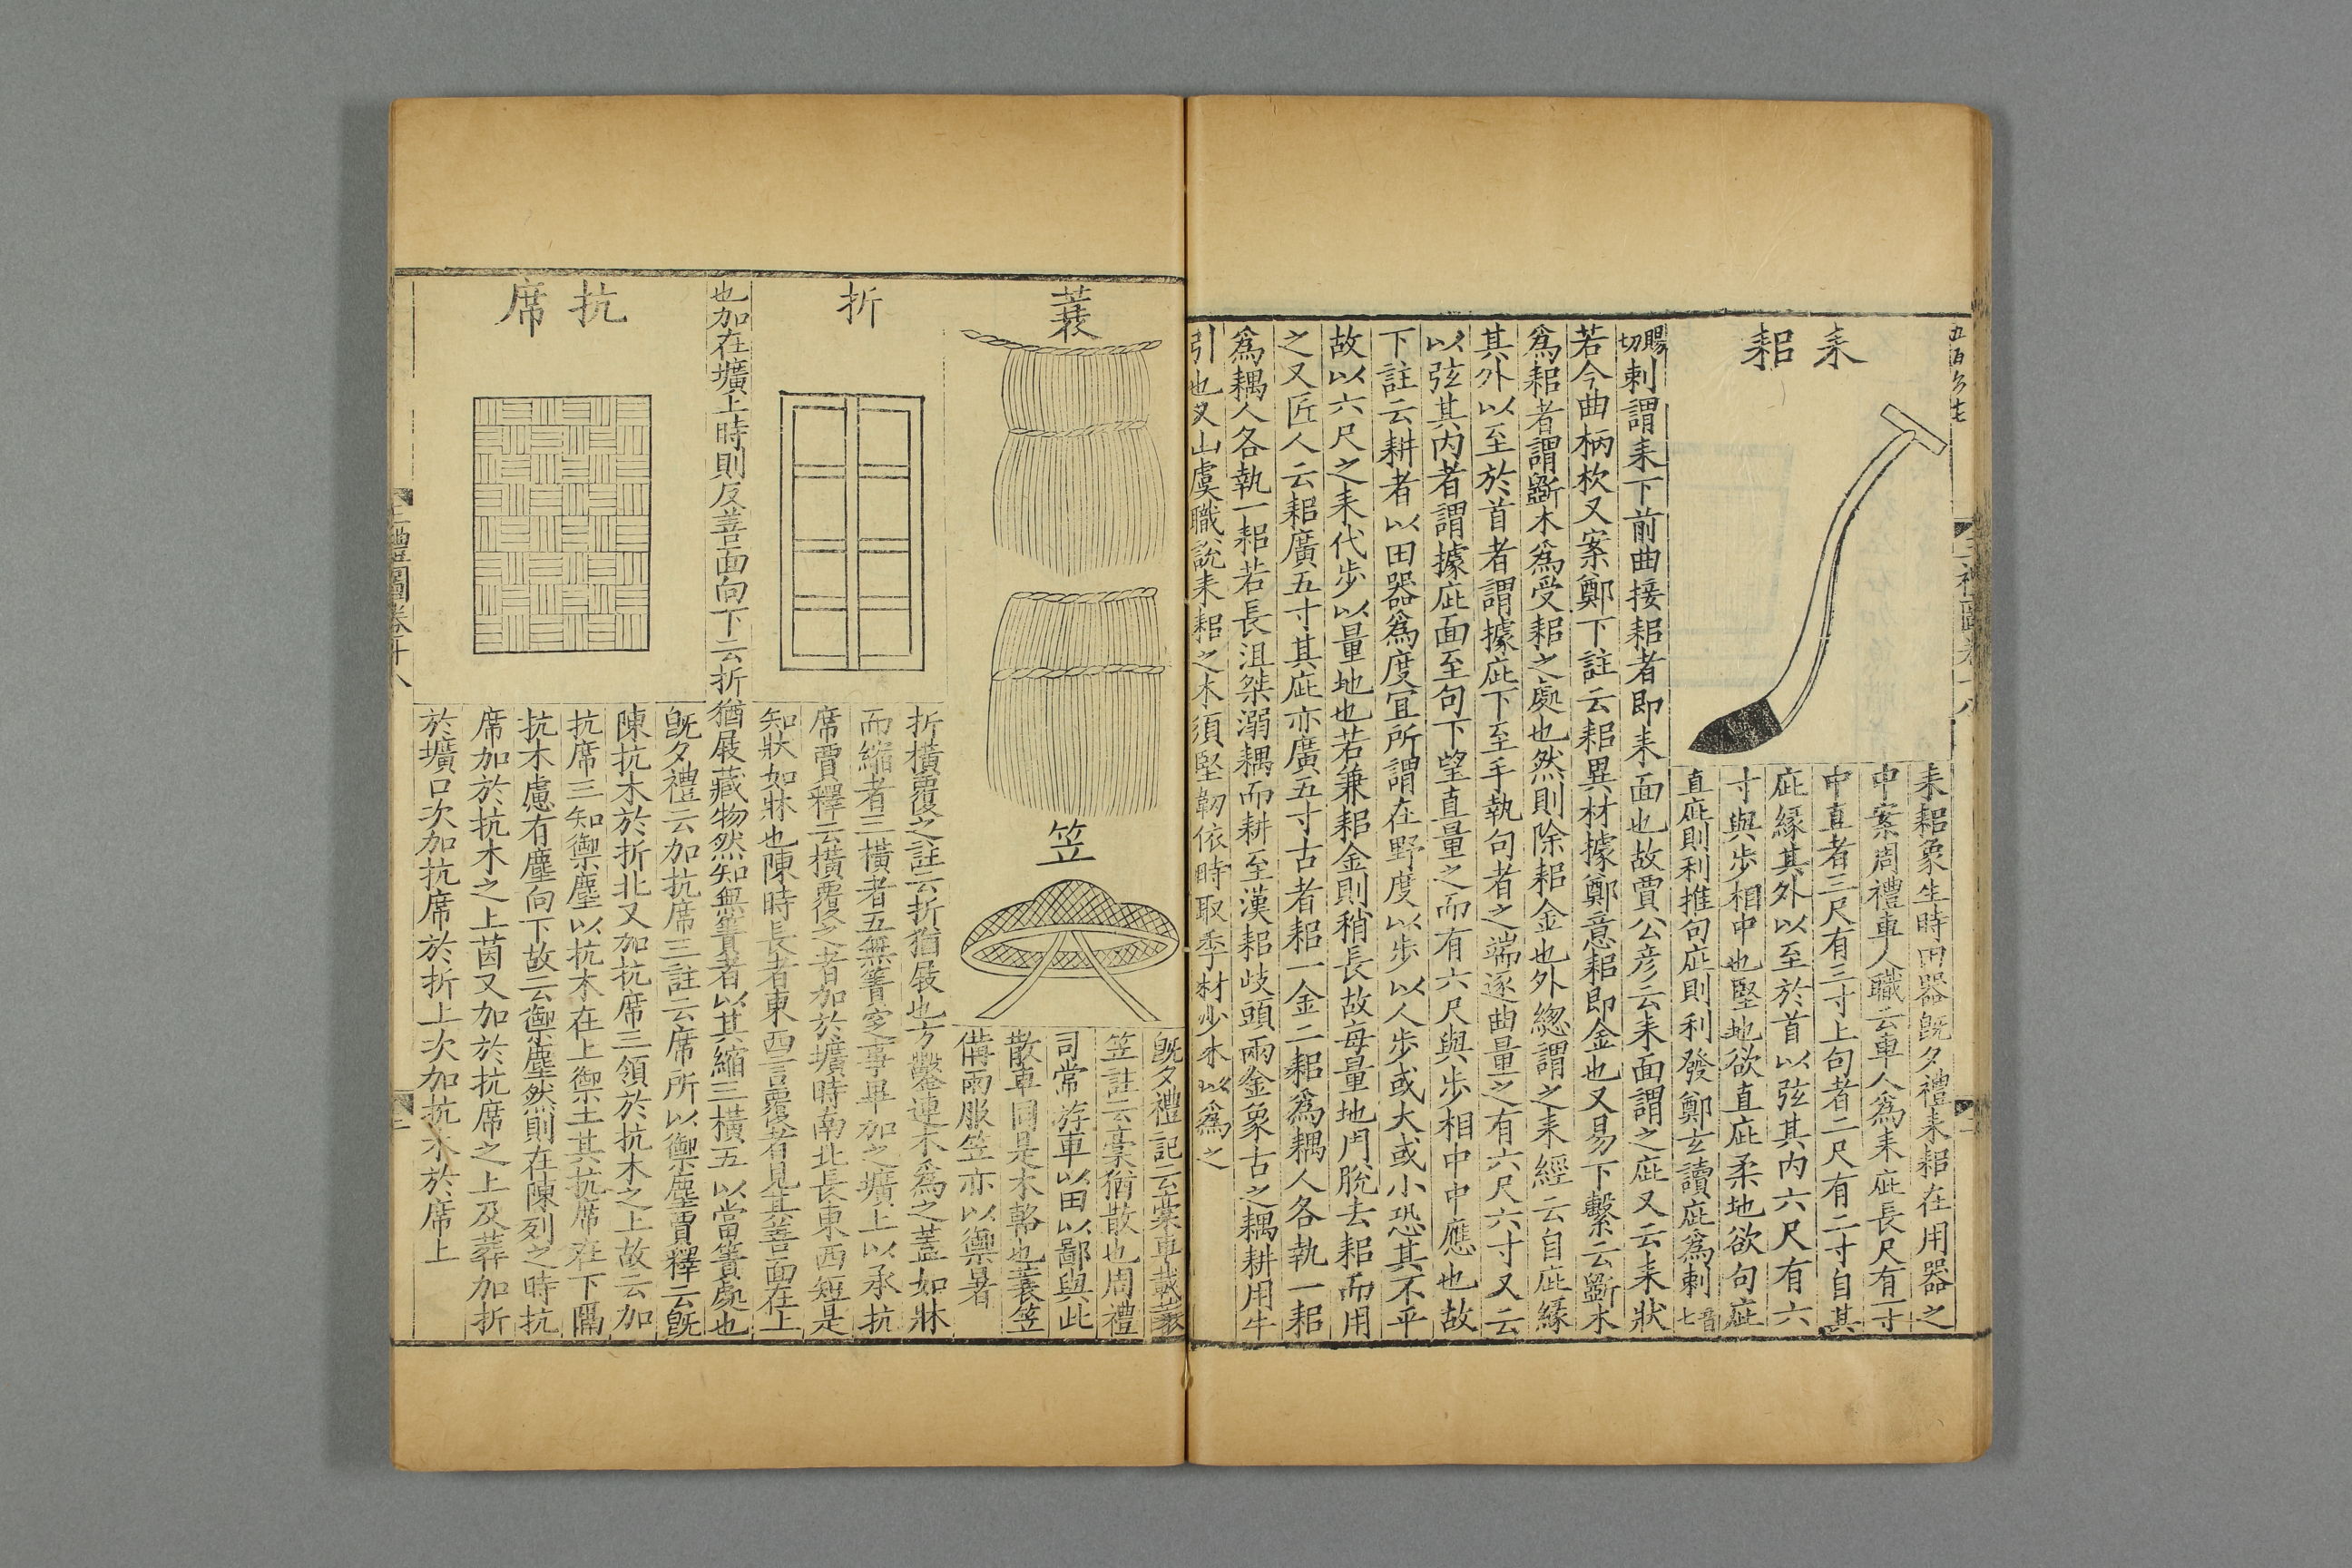 耒耜
耒耜象生時田器旣夕禮耒耜在用器之
中案周禮車人職云車人爲耒庛長尺有一寸
中直者三尺有三寸上句者二尺有二寸自其
庛緣其外以至於首以弦其内六尺有六
寸與步相中也堅地欲直庛柔地欲句庛
直庛則利推句庛則利發鄭玄讀庛爲剌音七
賜切剌謂耒下前曲接耜者即耒面也故賈公彦云耒面謂之庛又云耒狀
若今曲柄杴又案鄭下註云耜異材據鄭意耜即金也又易下繫云斵木
爲耜者謂斵木爲受耜之處也然則除耜金也外緫謂之耒經云自庛緣
其外以至於首者謂據庛下至手執句者之端逐曲量之有六尺六寸又云
以弦其内者謂據庛面至句下望直量之而有六尺與步相中中應也故
下註云耕者以田器爲度宜所謂在野度以步以人步或大或小恐其不平
故以六尺之耒代步以量地也若兼耜金則稍長故每量地門脫去耜而用
之又匠人云耜廣五寸其庛亦廣五寸古者耜一金二耜爲耦人各執一耜
爲耦人各執一耜若長沮桀溺耦而耕至漢耜歧頭兩金象古之耦耕用牛
引也又山虞職說耒耜之木須堅韌依時取季材少木以爲之
蓑
笠
旣夕禮記云稾車載蓑
笠註云稾猶散也周禮
司常斿車以田以鄙與此
散車同是木輅也蓑笠
備雨服笠亦以禦暑
折
折橫覆之註云折猶庪也方鑿連木爲之蓋如牀
而縮者三橫者五無簀窆事畢加之壙上以承抗
席賈釋云橫覆之者加於壙時南北長東西短是
知狀如牀也陳時長者東西言覆者見其善面在上
也加在壙上時則反善面向下云折猶庪藏物然知無簀者以其縮三橫五以當簀處也
抗席
旣夕禮云加抗席三註云席所以禦塵賈釋云旣
陳抗木於折北又加抗席三領於抗木之上故云加
抗席三知禦塵以抗木在上禦土其抗席在下隔
抗木慮有塵向下故云禦塵然則在陳列之時抗
席加於抗木之上茵又加於抗席之上及葬加折
於壙口次加抗席於折上次加抗木於席上
三禮圖卷十八